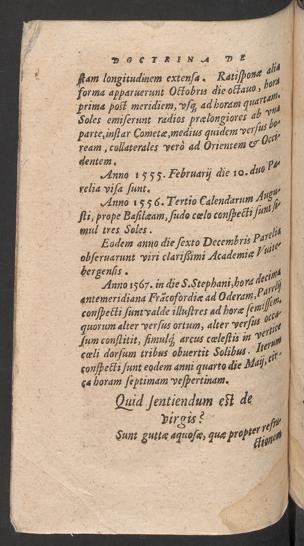 DOCTRINA DE
ſtam longitudinem extenſa. Ratiſponæ alia
forma apparuerunt Octobris die octauo, hora
prima poſt meridiem, vſq; ad horam quartam.
Soles emiſerunt radios prælongiores ab vna
parte, inſtar Cometæ, medius quidem verſus bo-
ream, collaterales verò ad Orientem & Occi-
dentem.
Anno 1555. Februarij die 10. duo Pa-
relia viſa ſunt.
Anno 1556. Tertio Calendarum Augu-
ſti, prope Baſilæam, ſudo cælo conſpecti ſunt ſi-
mul tres Soles.
Eodem anno die ſexto Decembris Parelia
obſeruarunt viri clariſsimi Academiæ Vuite-
bergenſis.
Anno 1567. in die S. Stephani, hora decima
antemeridiana Frãcofordiæ ad Oderam, Parelij
conſpecti ſunt valde illuſtres ad horæ ſemiſſem,
quorum alter verſus ortum, alter verſus occa-
ſum conſtitit, ſimulq; arcus cæleſtis in vertice
cæli dorſum tribus obuertit Solibus. Iterum
conſpecti ſunt eodem anni quarto die Maij, cir-
ça horam ſeptimam veſpertinam.
Quid ſentiendum eſt de
virgis?
Sunt guttæ aquoſæ, quæ propter refra-
ctionem